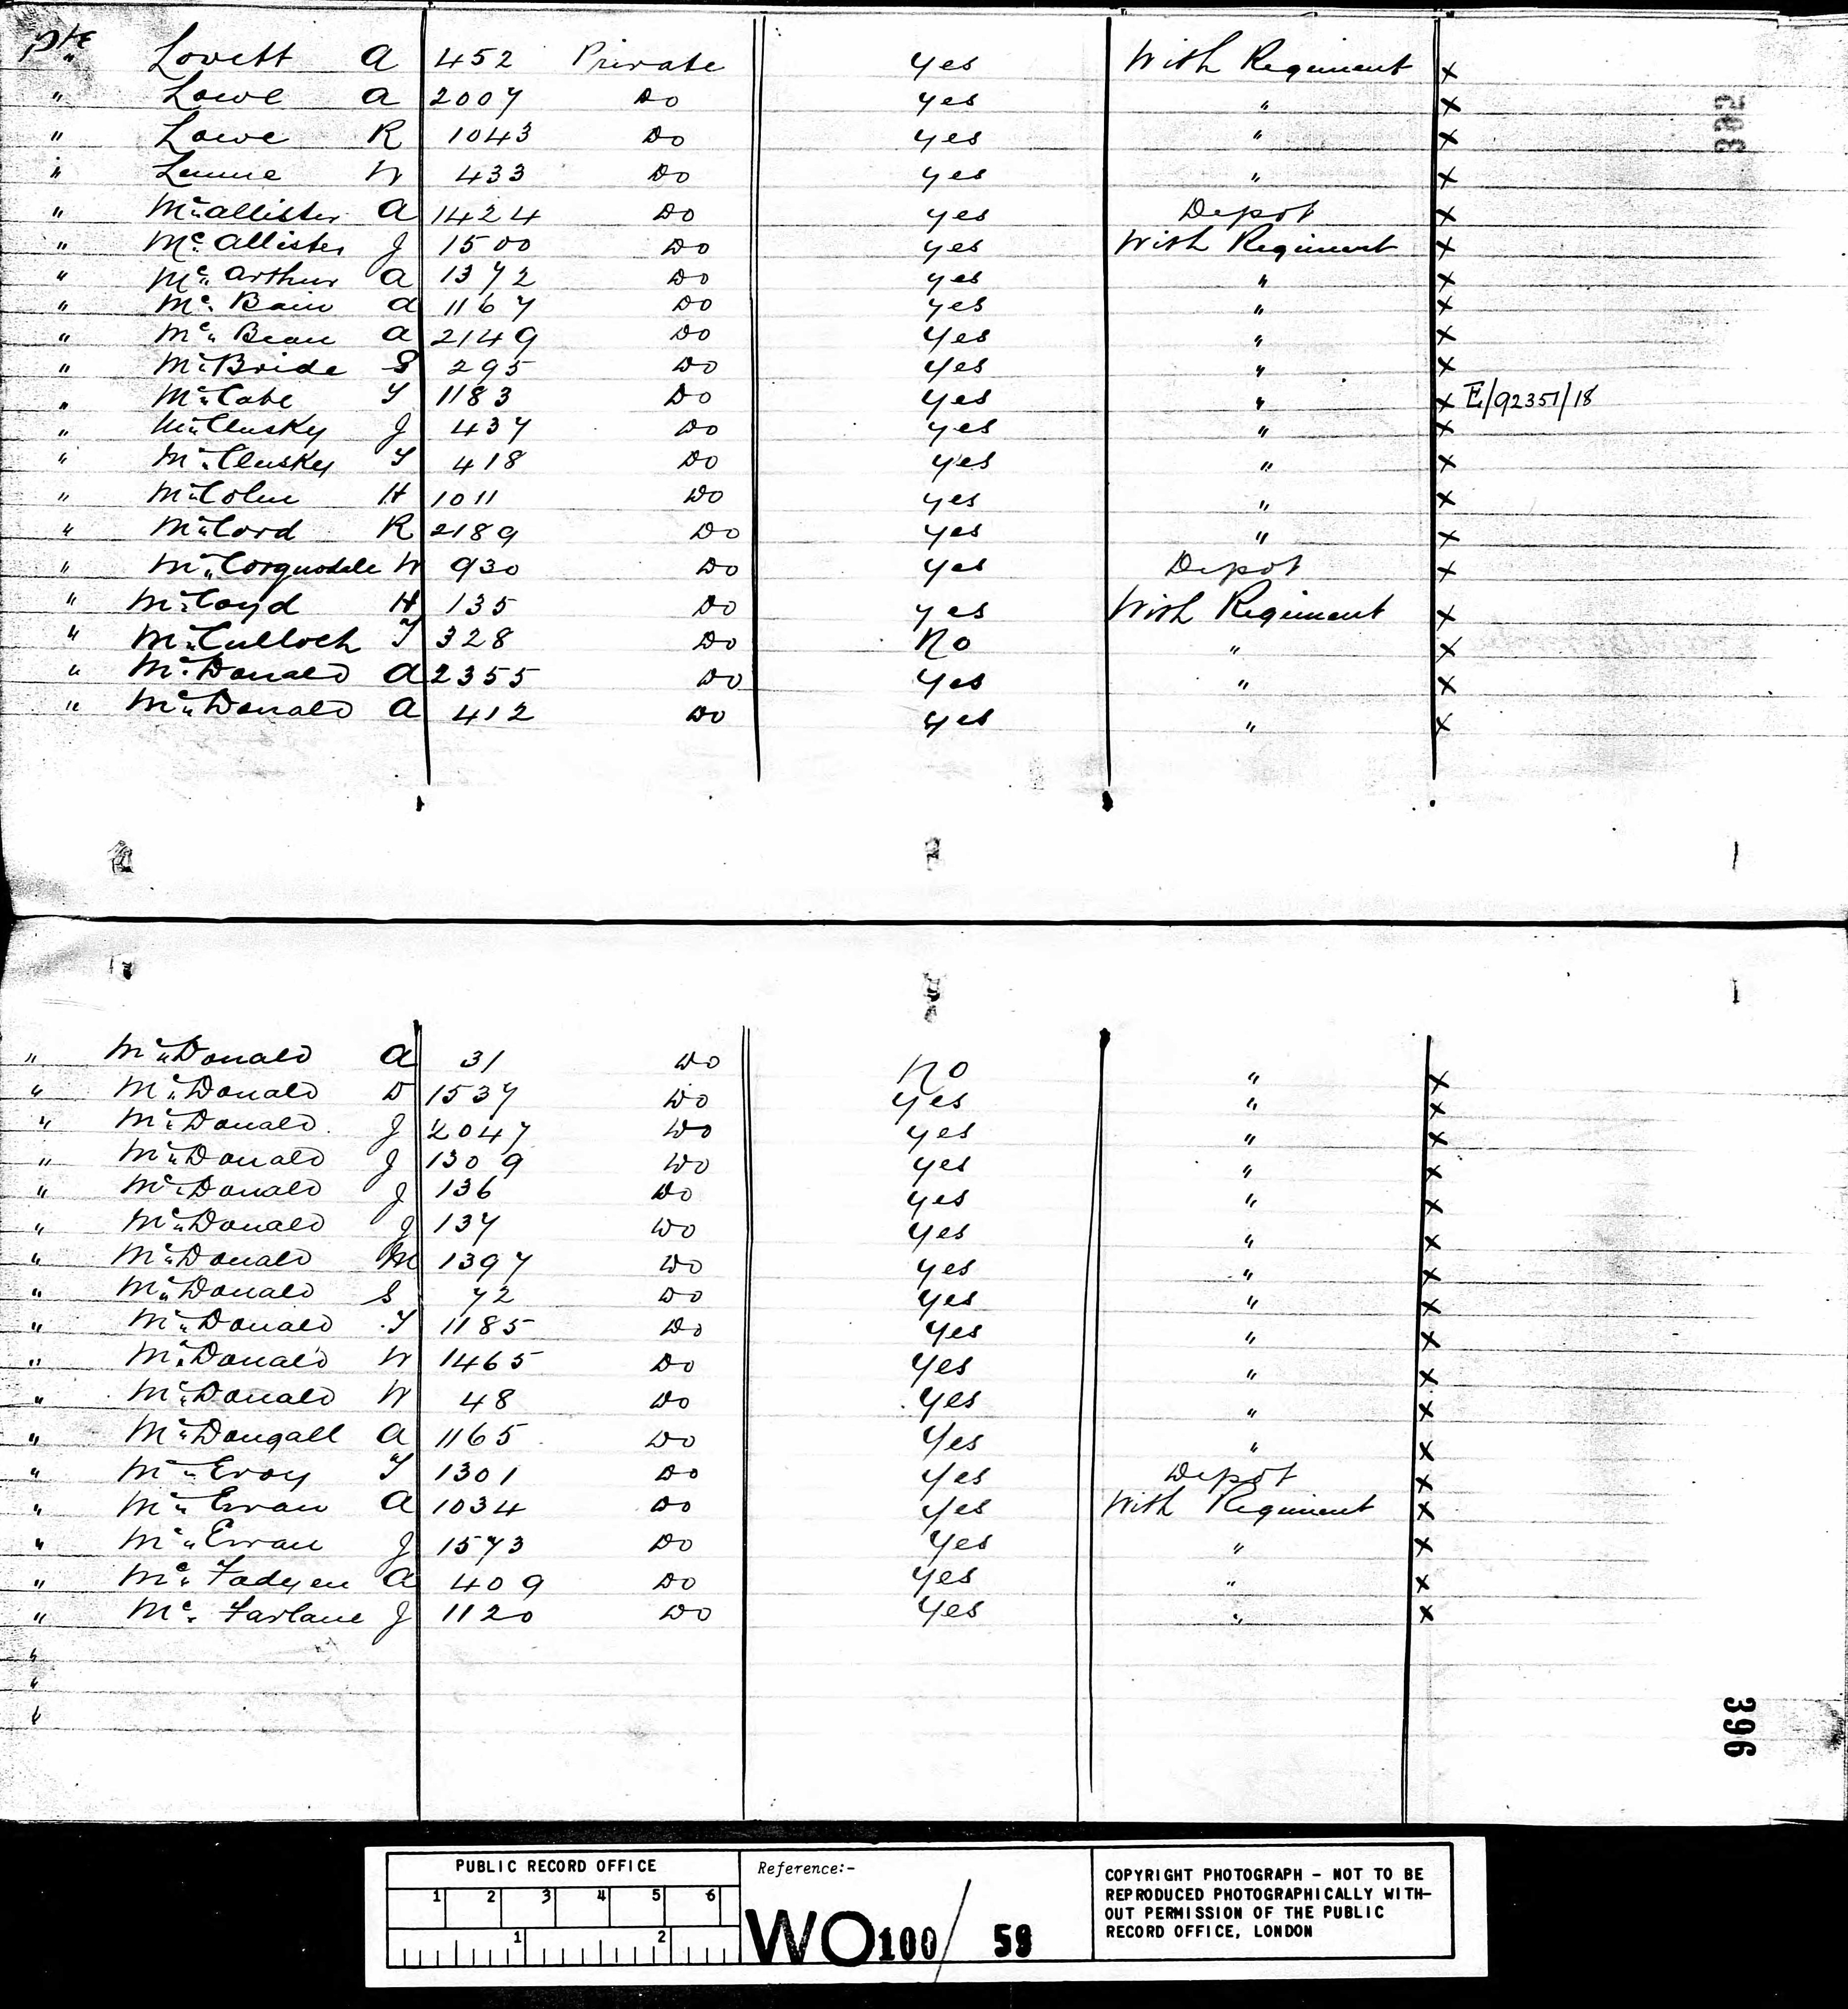 Pte Lovett A 452 Private yes With Regiment x
" Lowe A 2007 Do yes " x
" Lowe R 1043 Do yes " x
" W 433 Do yes " x
" McAllister A 1424 Do yes Depot x
" McAllister J 1500 Do yes With Regiment x
" McArthur A 1372 Do yes " x
" McBain A 1167 Do yes " x
" McBean A 2149 Do yes " x
" McBride S 295 Do yes " x
" McCabe T 1183 Do yes " x E/92351/18
" McClusky J 437 Do yes " x
" McClusky T 418 Do yes " x
" McColm H 1011 Do yes " x
" McCord R 2189 Do yes " x
" McCorquodale W 930 Do yes Depot x
" McCoyd H 135 Do yes With Regiment x
" McCulloch T 328 Do No " x
" McDonald A 2355 Do yes " x
" McDonald A 412 Do yes " x
302
" McDonald A 31 Do No " x
" McDonald D 1537 Do yes " x
" McDonald J 2047 Do yes " x
" McDonald J 1309 Do yes " x
" McDonald J 136 Do yes " x
" McDonald J 137 Do yes " x
" McDonald M 1397 Do yes " x
" McDonald S 72 Do yes " x
" McDonald T 1185 Do yes " x
" McDonald W 1465 Do yes " x
" McDonald W 48 Do yes " x
" McDougall A 1165 Do yes " x
" McEvoy T 1301 Do yes Depot x
" McEwan A 1034 Do yes With Regiment x
" McEwan J 1573 Do yes " x
" McFadyen A 409 Do yes " x
" McFarlane J 1120 Do yes " x
"
"
"
396
PUBLIC RECORD OFFICE
1 2 3 4 5 6
1 2
Reference:-
WO 100 / 59
COPYRIGHT PHOTOGRAPH - NOT TO BE
REPRODUCED PHOTOGRAPHICALLY WITH-
OUT PERMISSION OF THE PUBLIC
RECORD OFFICE, LONDON